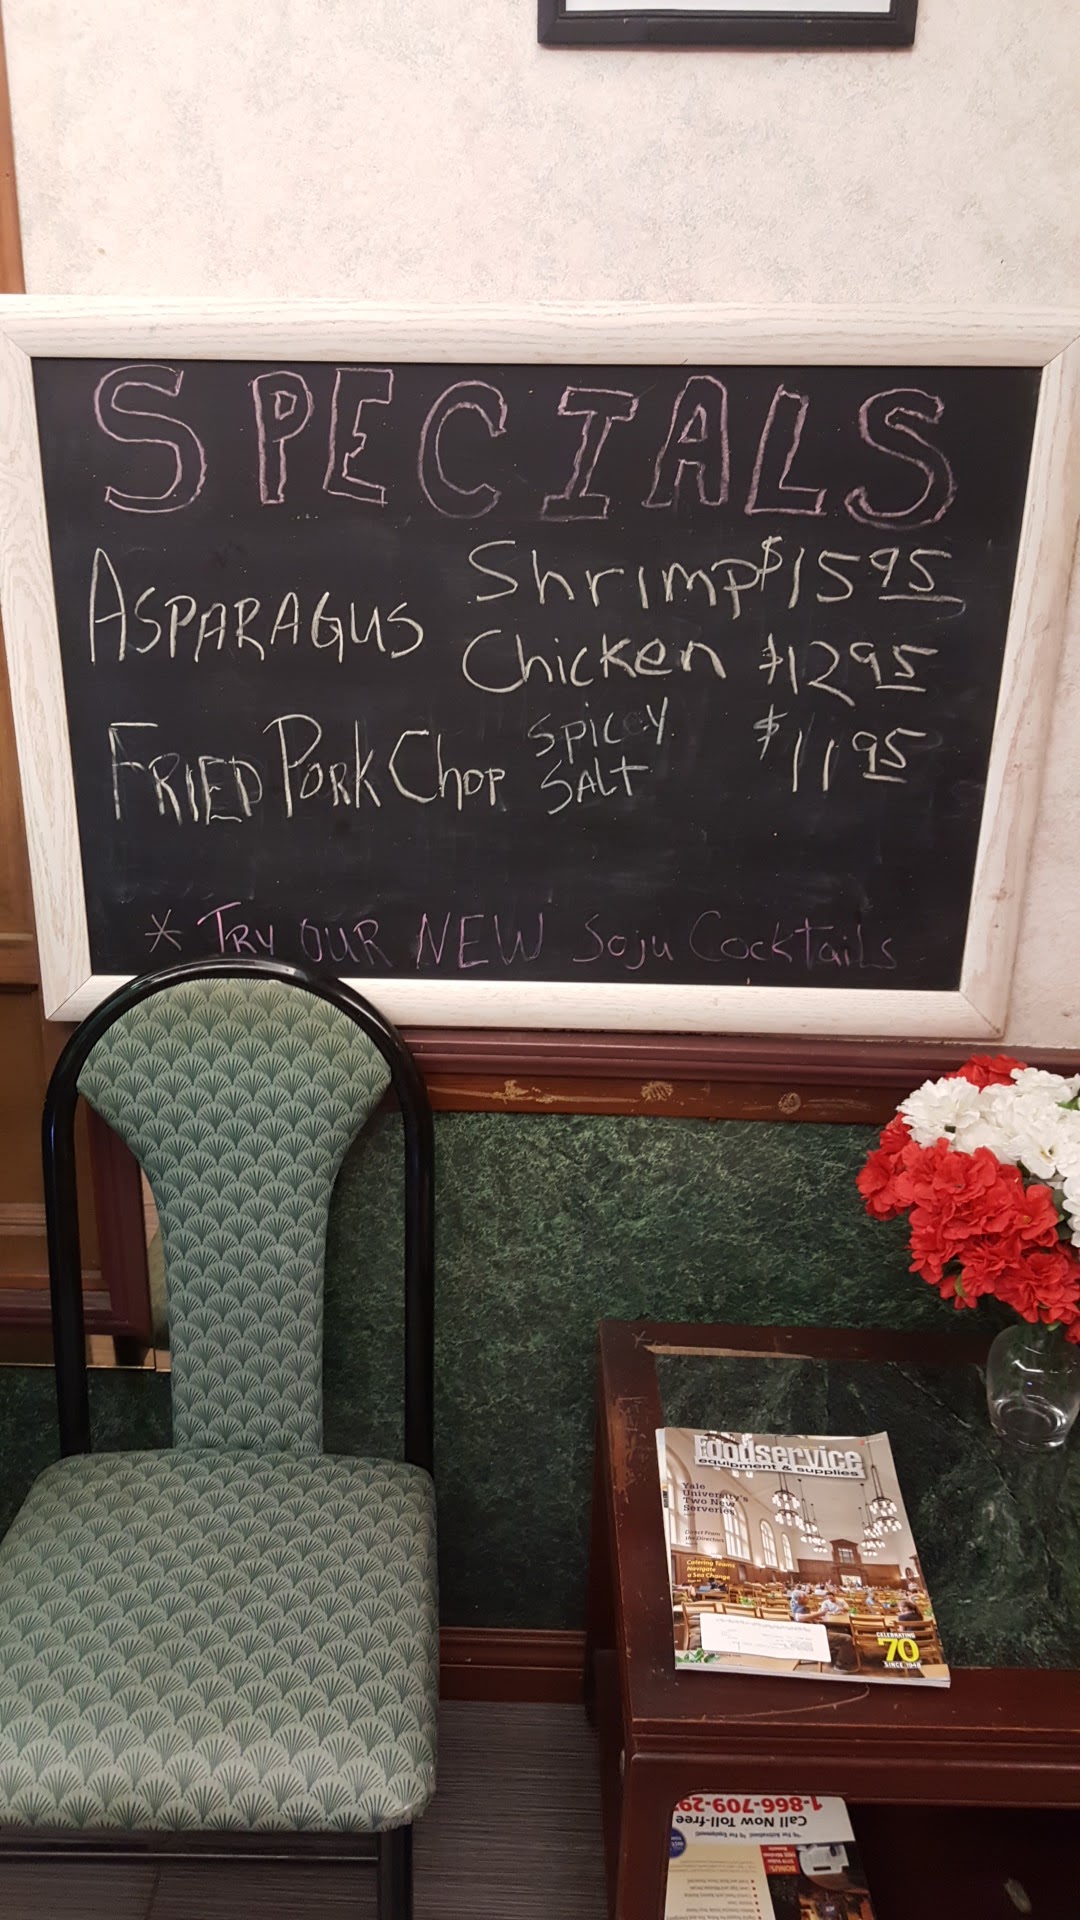 SPECIALS
ASPARAGUS Shrimp $15 95
Chicken $12 95
FRIED PORK CHOP SPICY SALT $11 95
* TRY OUR NEW Soju Cocktails
foodservice
equipment & supplies
Yale
University's
Two New
Serveries
Direct From
the Directors
Catering Teams
Navigate
a Sea Change
CELEBRATING
70
SINCE 1948
Call Now Toll-free
1-866-709-29
BONUS: